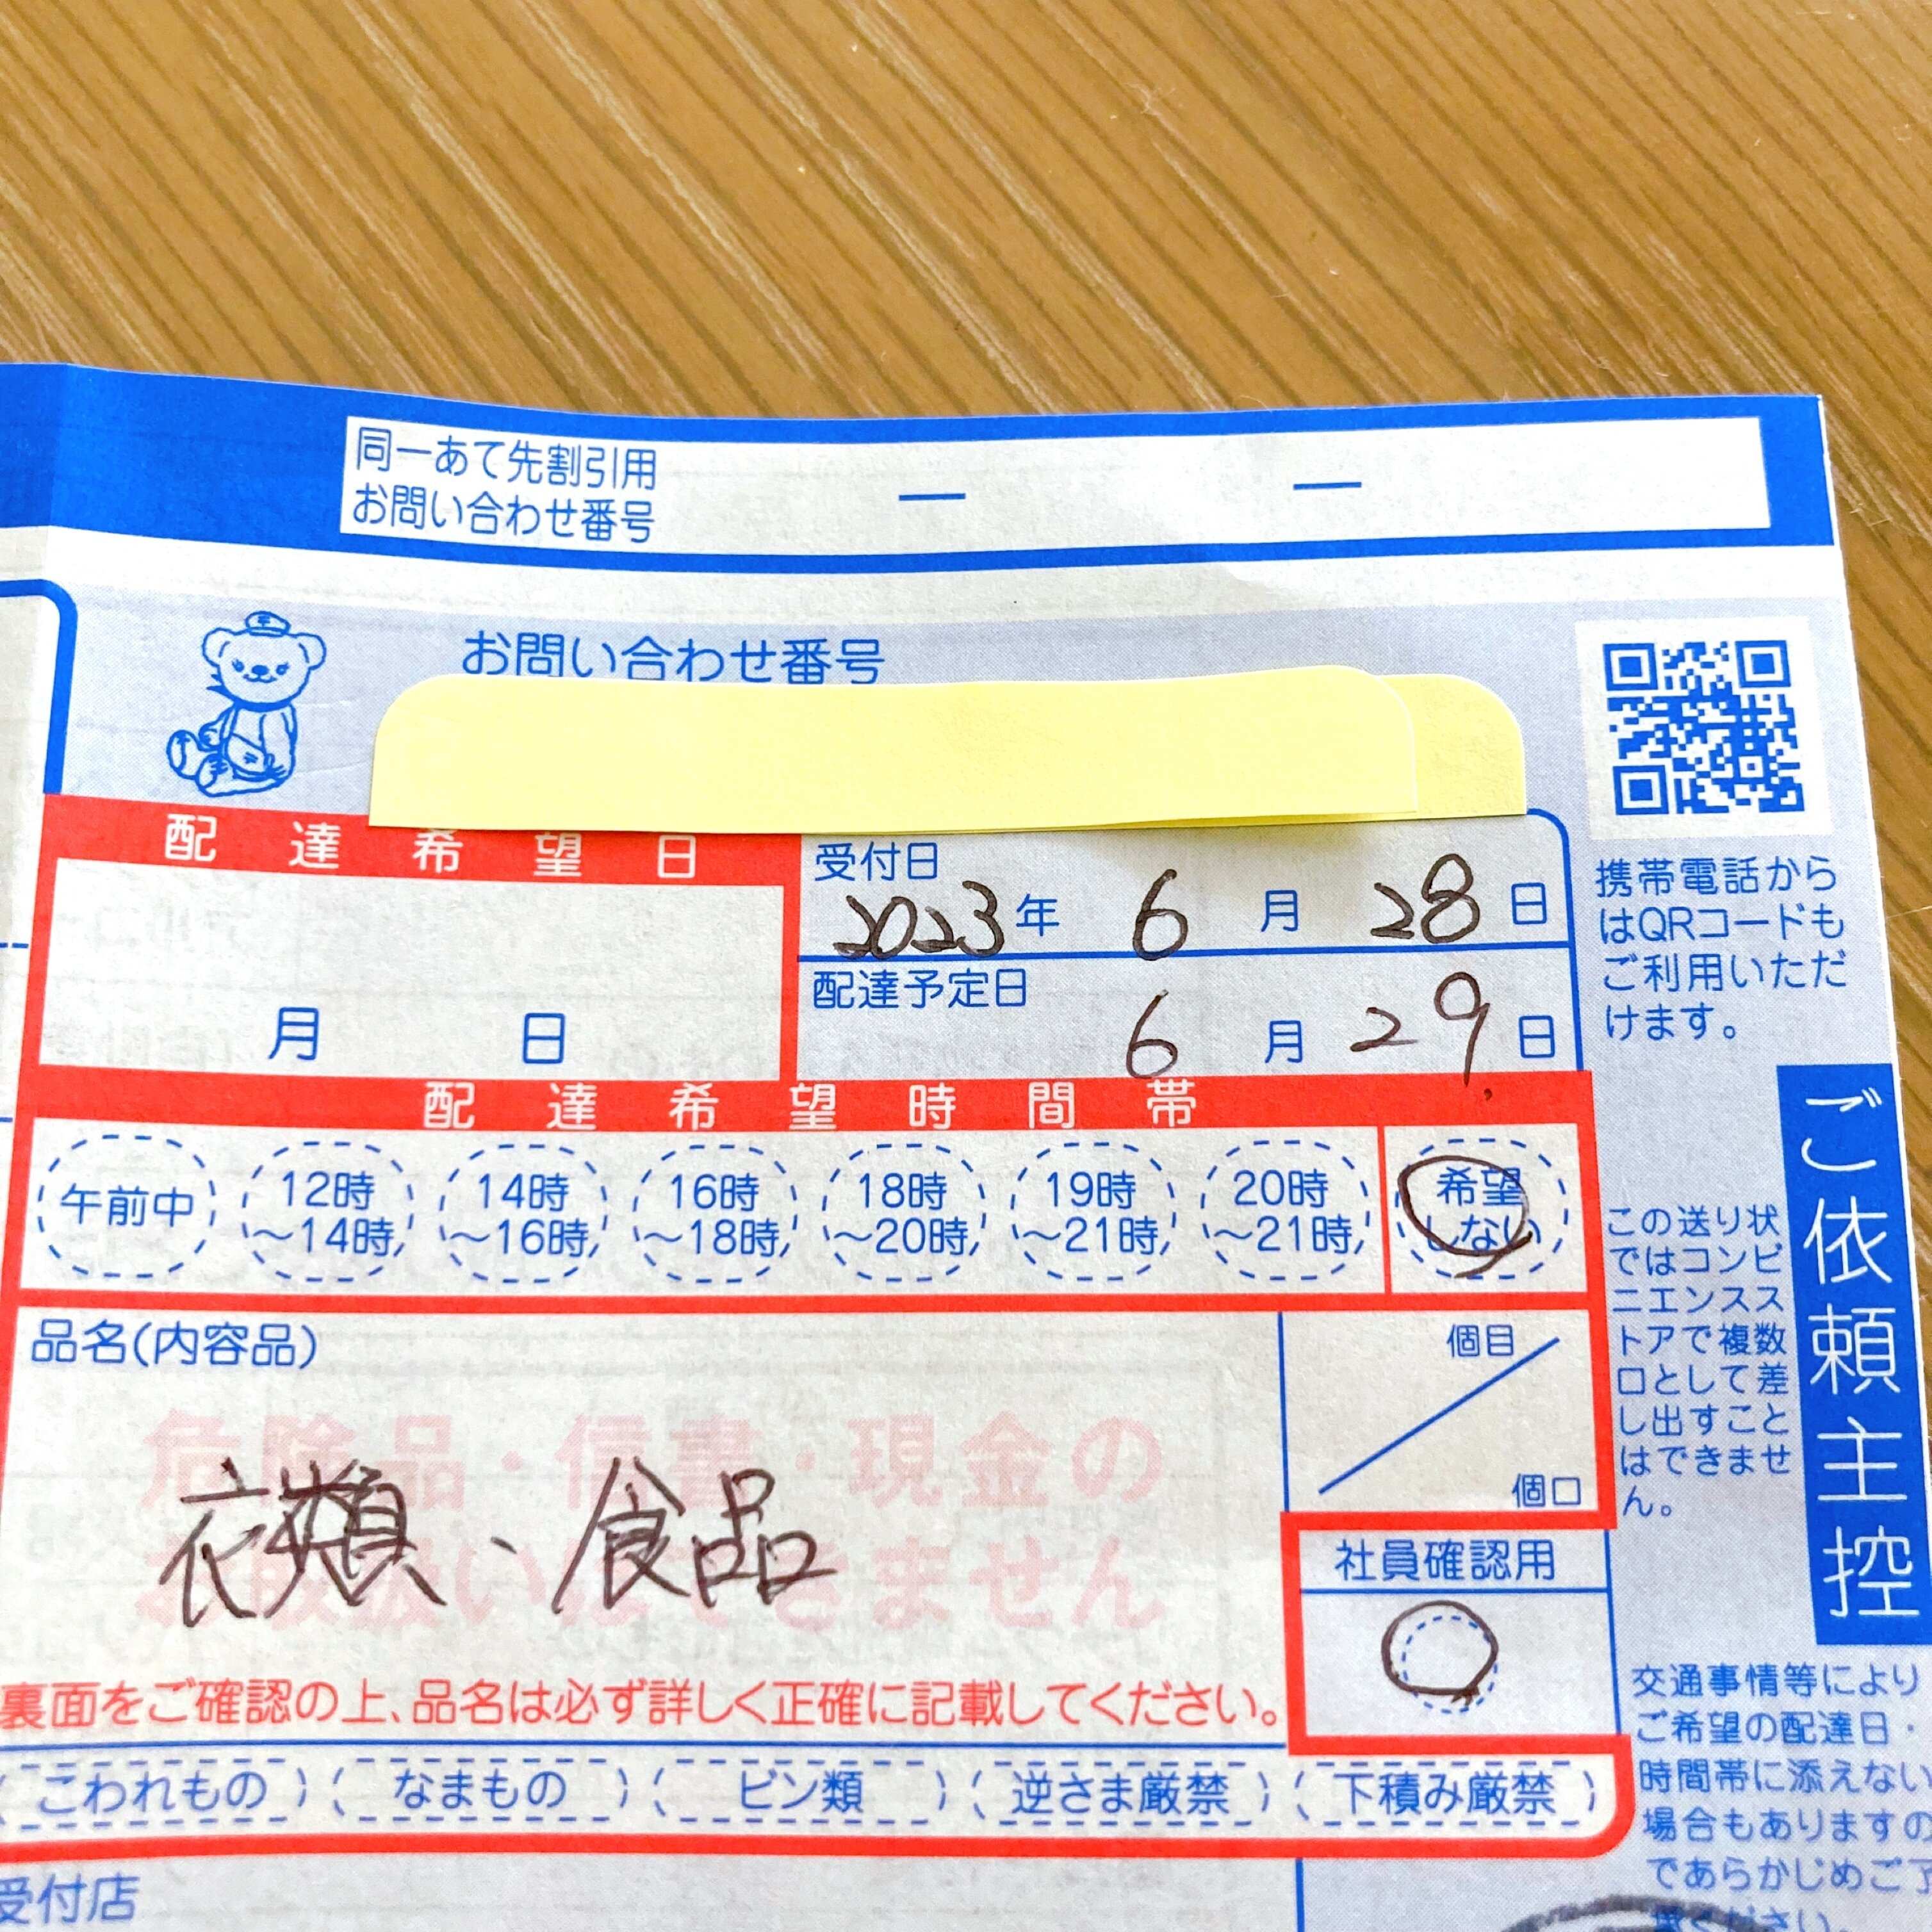 同一あて先割引用
お問い合わせ番号
お問い合わせ番号
配達希望日
月 日
受付日
2023年 6月 28日
配達予定日
6月 29日
配達希望時間帯
午前中
12時
～14時
14時
～16時
16時
～18時
18時
～20時
19時
～21時
20時
～21時
希望
しない
品名(内容品)
危険品・信書・現金の
お取扱いはできません
衣類、食品
個目
個口
社員確認用
裏面をご確認の上、品名は必ず詳しく正確に記載してください。
こわれもの
なまもの
ビン類
逆さま厳禁
下積み厳禁
受付店
携帯電話から
はQRコードも
ご利用いただ
けます。
この送り状
ではコンビ
ニエンスス
トアで複数
口として差
し出すこと
はできませ
ん。
ご依頼主控
交通事情等により
ご希望の配達日・
時間帯に添えない
場合もありますの
であらかじめご了
承ください